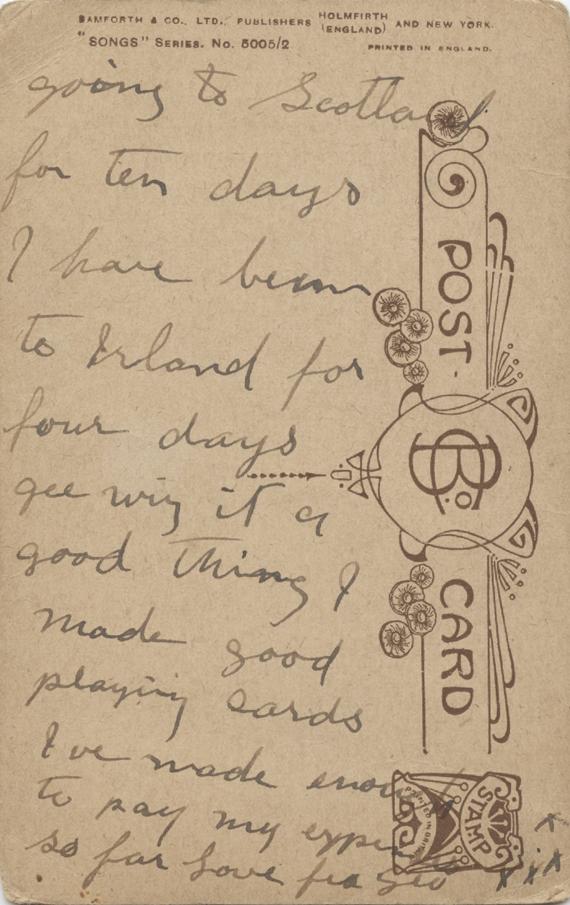 BAMFORTH & CO., LTD., PUBLISHERS HOLMFIRTH (ENGLAND) AND NEW YORK.
"SONGS" SERIES. No. 5005/2
PRINTED IN ENGLAND.
going to Scotland
for ten days
I have been
to Irland for
four days
gee wiz it a
good thing I
made good
playing cards
I've made enough
to pay my expen
so far love fra Geo
x
x x x
POST CARD
B Co
STAMP
PRINTED IN